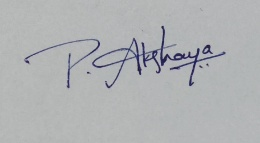 P. Akshaya